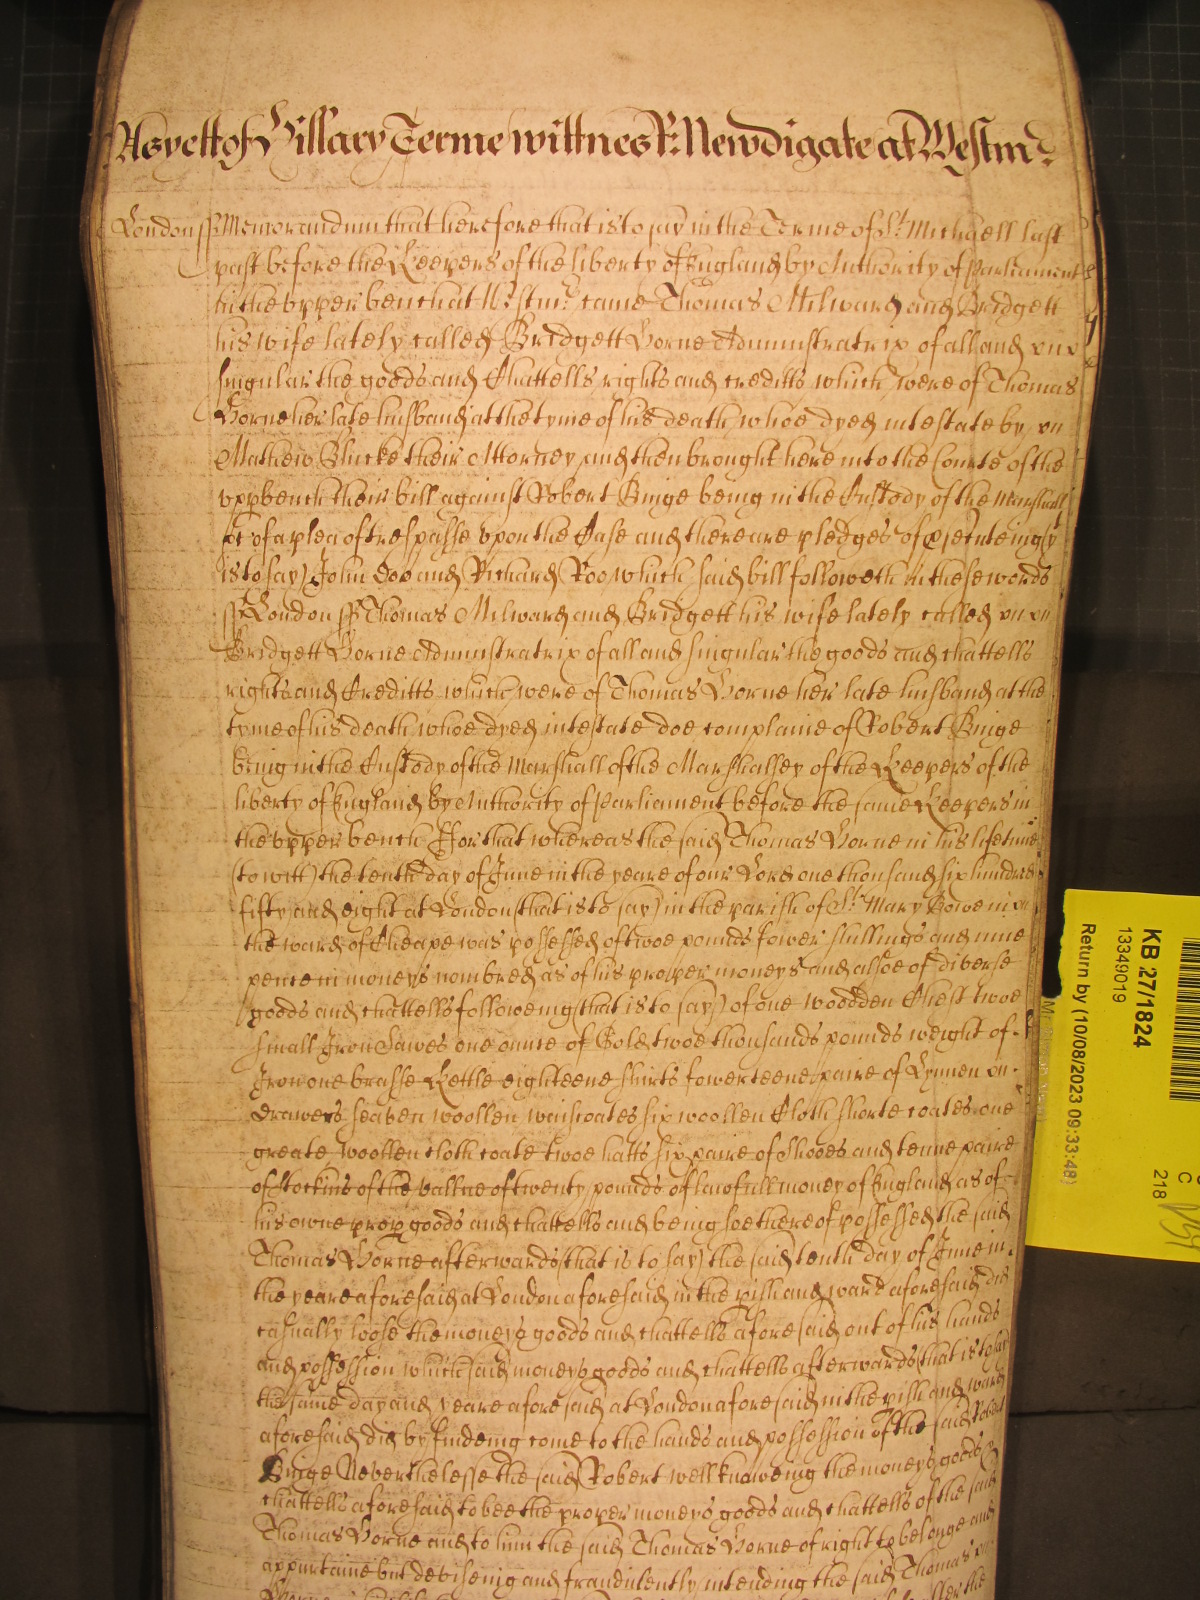 As yett of Hillary Terme wittnes R: Newdigate at Westmr:
London ss Memorandum that heretofore that is to say in the Terme of St. Michaell last
past before the Keepers of the liberty of England by Authority of Parliament
in the upper bench at Westmr: came Thomas Milward and Bridgett
his wife lately called Bridgett Horne Administratrix of all and
singular the goods and Chattells rights and creditts which were of Thomas
Horne her late husband at the tyme of his death whoe dyed intestate by
Mathew Blucke their Attorney and then brought here into the Courte of the
uppbench their bill against Robert Binge being in the Custody of the Marshall
&c of a plea of trespasse upon the Case and there are pledges of
is to say) John Doo and Richard Roo which said bill followeth in these words
ss London ss Thomas Milward and Bridgett his wife lately called
Bridgett Horne Administratrix of all and singular the goods and chattells
rights and Creditts which were of Thomas Horne her late husband at the
tyme of his death whoe dyed intestate doe complaine of Robert Binge
being in the Custody of the Marshall of the Marshallsey of the Keepers of the
liberty of England by Authority of Parliament before the same Keepers in
the upper bench ffor that whereas the said Thomas Horne in his lifetime
(to witt) the tenth day of June in the yeare of our Lord one thousand six hundred
fifty and eight at London (that is to say) in the parish of St. Mary Bowe in
the ward of Cheape was possessed of twoe pounds fower shillings and nine
pence in moneys nombred as of his proper moneys and alsoe of diverse
goods and chattells followeing (that is to say) of one woodden Chest twoe
small Iron Sawes one ounce of Gold twoe thousands pounds weight of
Iron one brasse Kettle eighteene shirts fowerteene paire of Lynnen
drawers seaven woollen wascoates six woollen Cloth shorte coates one
greate woollen cloth coate twoe hatts six paire of Shooes and tenne paire
of Stockins of the vallue of twenty pounds of lawfull money of England as of
his owne prop goods and chattells and being soe thereof possessed the said
Thomas Horne afterwards (that is to say) the said tenth day of June in
the yeare aforesaid at London aforesaid in the pish and ward aforesaid did
casually loose the moneys goods and chattells aforesaid out of his hands
and possession which said moneys goods and chattells afterwards (that is to say
the same day and yeare aforesaid at London aforesaid in the pish and ward
aforesaid did by findeing come to the hands and possession of the said Robert
Binge Neverthelesse the said Robert well knoweing the moneys goods &
chattells aforesaid to bee the proper moneys goods and chattells of the said
Thomas Horne and to him the said Thomas Horne of right to belonge and
appurtaine but deviseing and fraudulently intending the said Thomas
KB 27/1824
13349019
Return by (10/08/2023 09:33:48)
C
218